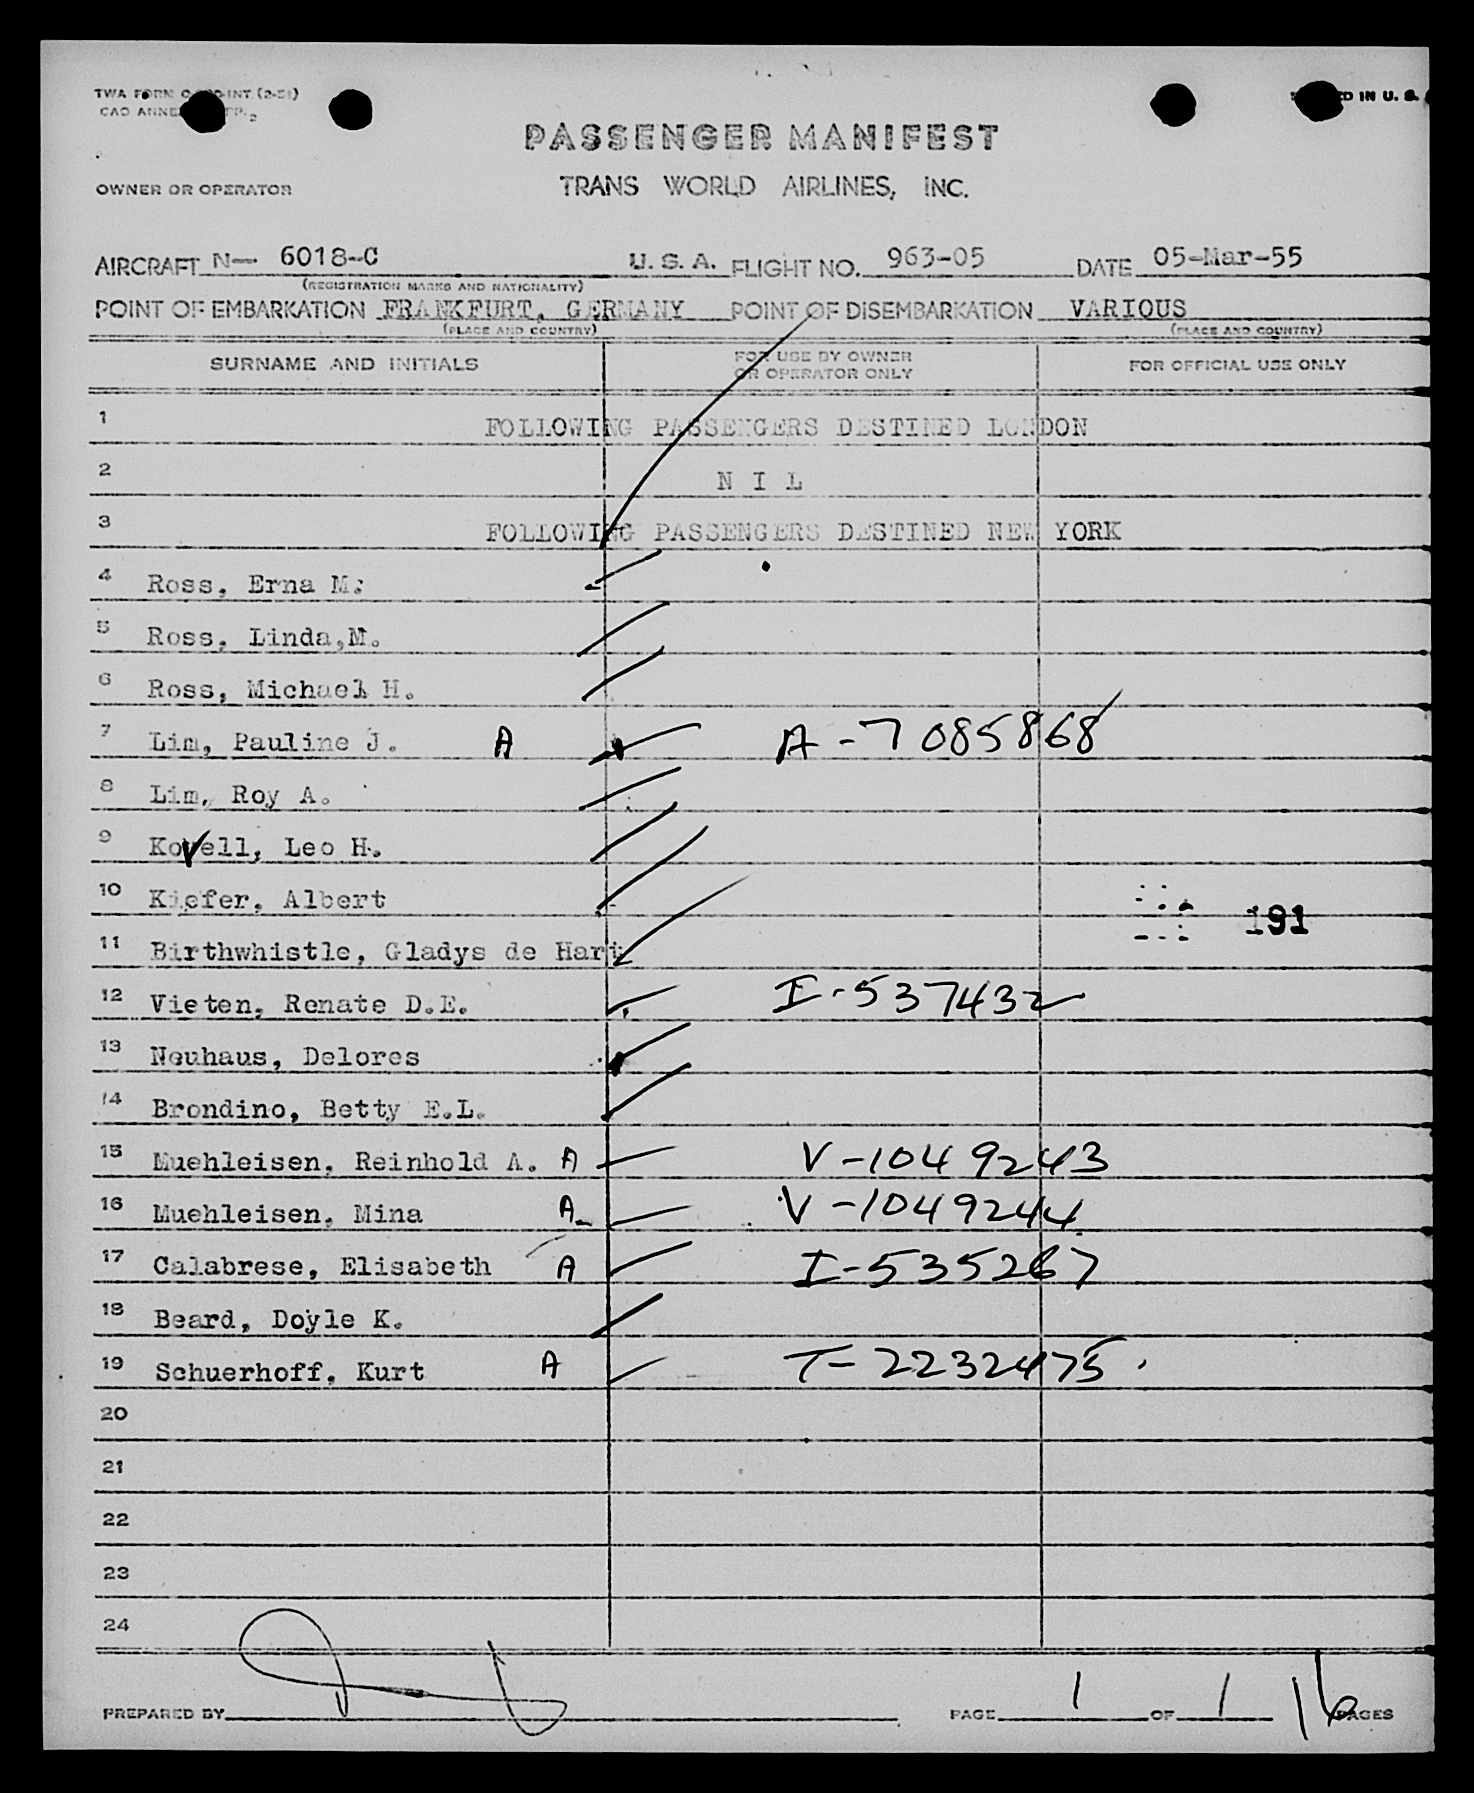 TWA FORM
CAO ANNEX
IN U. S.
PASSENGER MANIFEST
OWNER OR OPERATOR TRANS WORLD AIRLINES, INC.
AIRCRAFT N— 6018-C U.S.A. FLIGHT NO. 963-05 DATE 05-Mar-55
(REGISTRATION MARKS AND NATIONALITY)
POINT OF EMBARKATION FRANKFURT, GERMANY POINT OF DISEMBARKATION VARIOUS
(PLACE AND COUNTRY) (PLACE AND COUNTRY)
SURNAME AND INITIALS FOR USE BY OWNER OR OPERATOR ONLY FOR OFFICIAL USE ONLY
1 FOLLOWING PASSENGERS DESTINED LONDON
2 N I L
3 FOLLOWING PASSENGERS DESTINED NEW YORK
4 Ross, Erna M.
5 Ross, Linda,M.
6 Ross, Michael H.
7 Lim, Pauline J. A A-7085868
8 Lim, Roy A.
9 Kovell, Leo H.
10 Kiefer, Albert
191
11 Birthwhistle, Gladys de Hart
12 Vieten, Renate D.E. I-537432
13 Neuhaus, Delores
14 Brondino, Betty E.L.
15 Muehleisen, Reinhold A. A V-1049243
16 Muehleisen, Mina A V-1049244
17 Calabrese, Elisabeth A I-535267
18 Beard, Doyle K.
19 Schuerhoff, Kurt A T-2232475
20
21
22
23
24
PREPARED BY PAGE 1 OF 1 PAGES
16